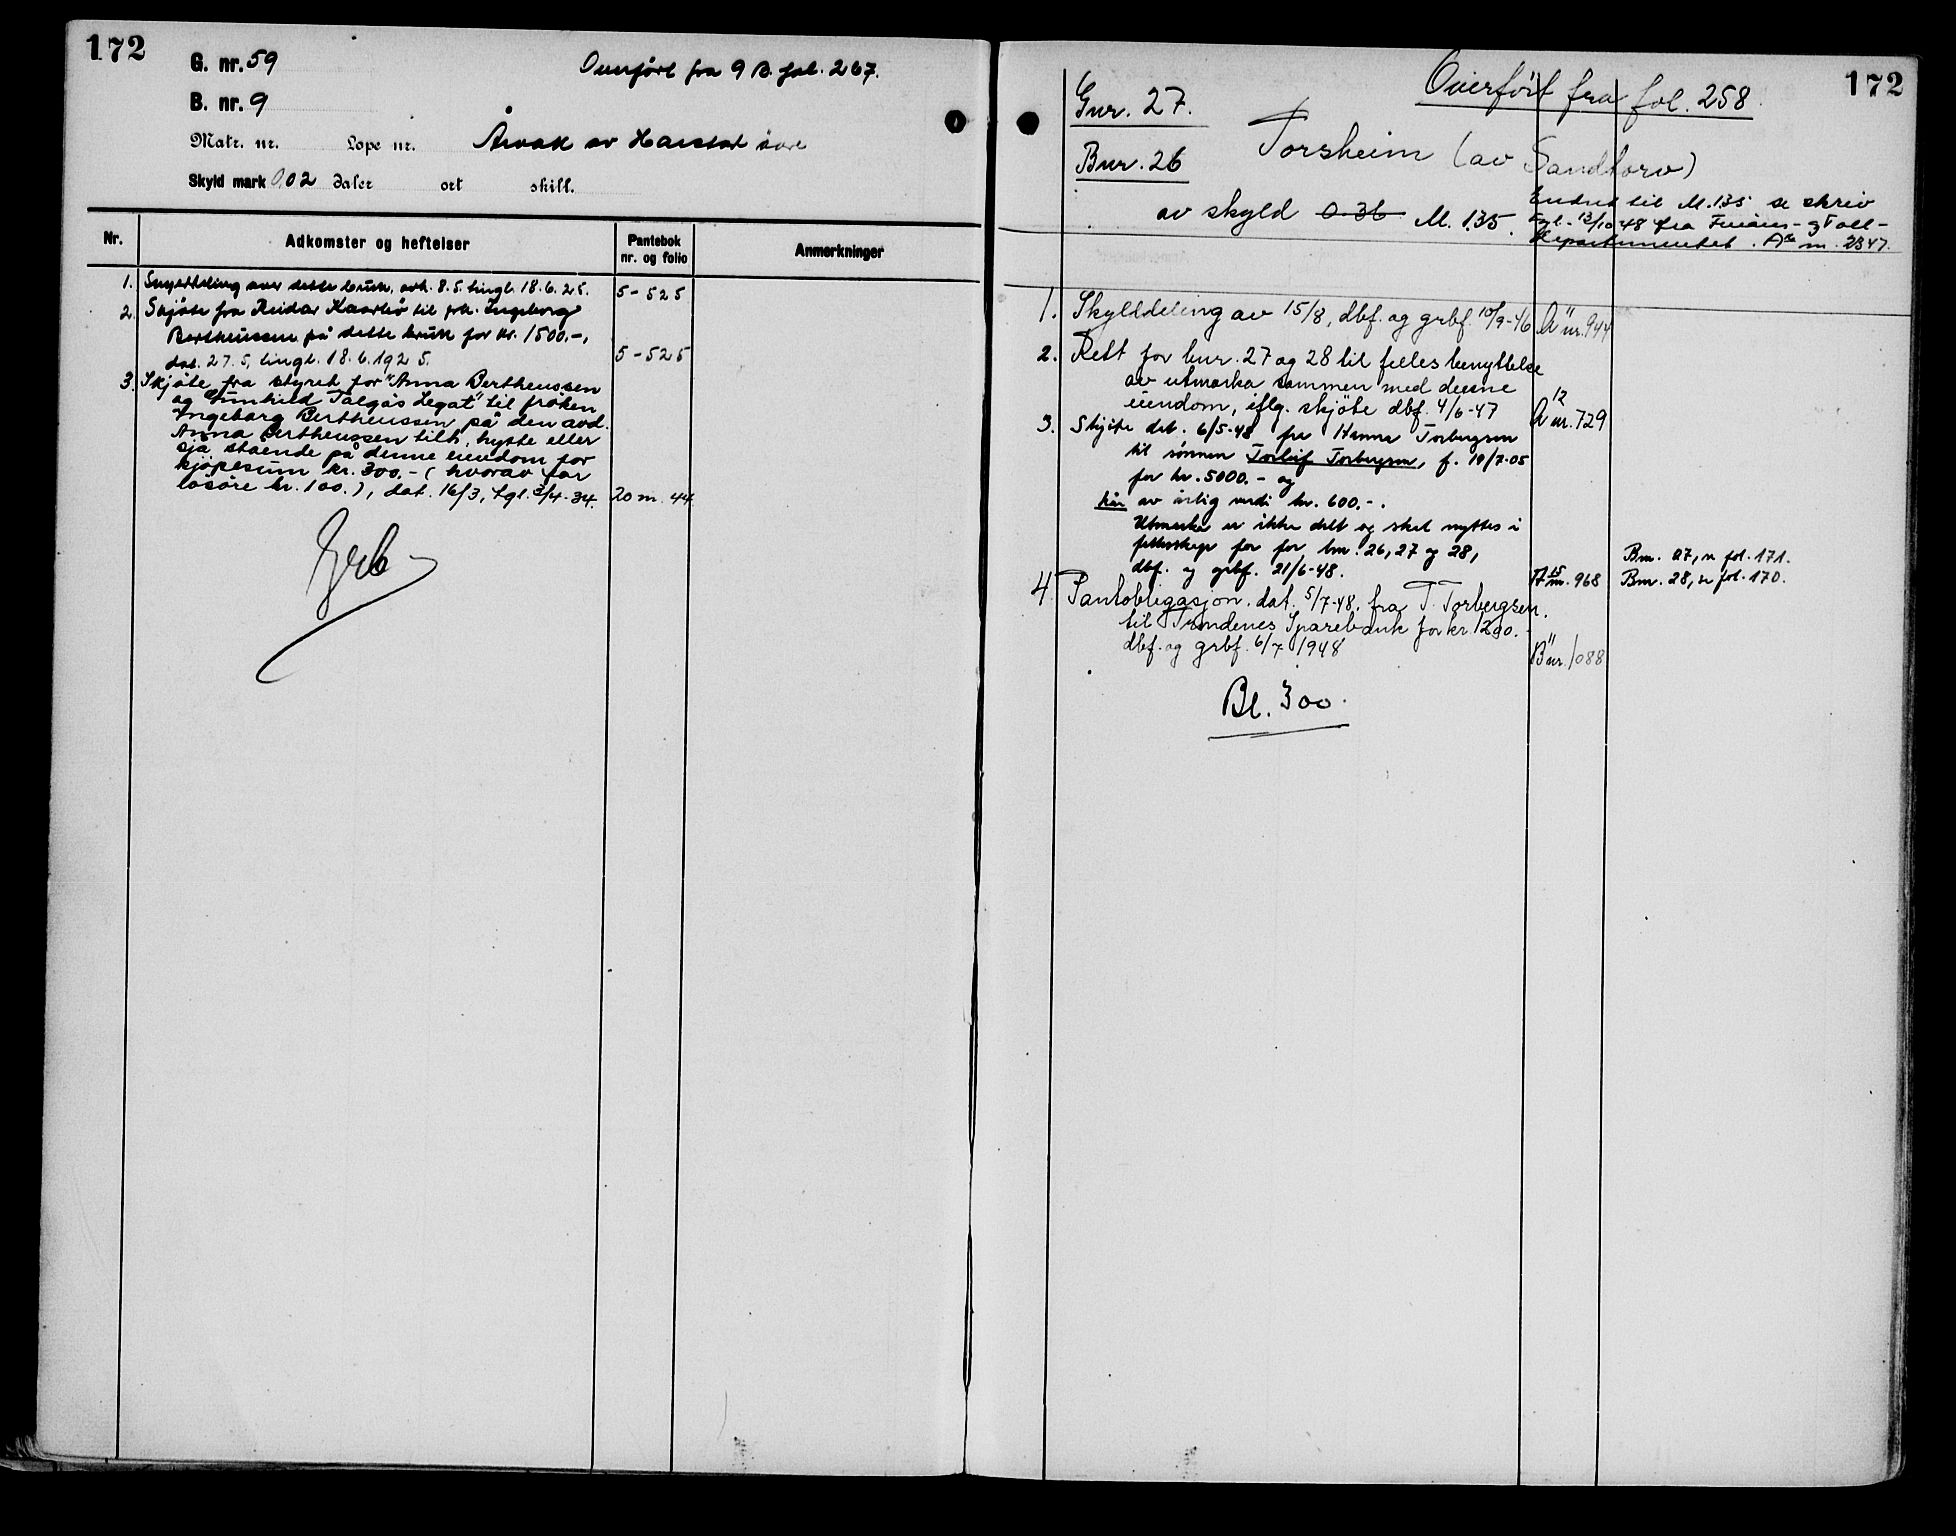 172
G. nr. 59
Overført fra 9 B. fol. 267.
B. nr. 9
Matr. nr. Løpe nr. Årvak av Harstad øvre
Skyld mark 0,02 daler ort skill.
Nr. Adkomster og heftelser Pantebok nr. og folio Anmerkninger
1. Skylddeling over dette bruk, avh. 8.5. tingl. 18.6.25. 5 - 525
2. Skjøte fra Reidar Kaarbø til frk. Ingeborg
Bertheussen på dette bruk for kr. 1500.-,
dat. 27.5, tingl. 18.6.1925. 5 - 525
3. Skjøte fra styret for "Anna Bertheussen
og Gunhild Talgøs Legat" til frøken
Ingeborg Bertheussen på den avd.
Anna Bertheussen tilh. hytte eller
sjå stående på denne eiendom for
kjøpesum kr. 300.- (hvorav for
løsøre kr. 100.), dat. 16/3, tgl. 3/4-34. 20 nr. 44
172
Overført fra fol. 258
Gnr. 27.
Bnr. 26 Torsheim (av Sandtorv)
av skyld 0.36 M. 1.35.
Endret til M. 1.35 se skriv
tgl. 13/10-48 fra Finans- og Toll-
departementet. A16 nr. 2347.
1. Skylddeling av 15/8, dbf. og grbf. 10/9-46 A11 nr. 944
2. Rett for bnr. 27 og 28 til felles benyttelse
av utmarka sammen med denne
eiendom, iflg. skjøte dbf. 4/6-47 A12 nr. 729
3. Skjøte dat. 6/5-48 fra Hanna Torbergsen
til sønnen Torleif Torbergsen, f. 10/7-05
for kr. 5000.- og
kår av årlig verdi kr. 600.-.
Utmarka er ikke delt og skal nyttes i
fellesskap for for bnr. 26, 27 og 28,
dbf. og grbf. 21/6-48. A15 nr. 968
Bnr. 27, se fol. 171.
Bnr. 28, se fol. 170.
4. Pantobligasjon, dat. 5/7-48, fra T. Torbergsen.
til Trondenes Sparebank for kr. 1200.-
dbf. og grbf. 6/7 1948 B11 nr. 1088
Bl. 300.